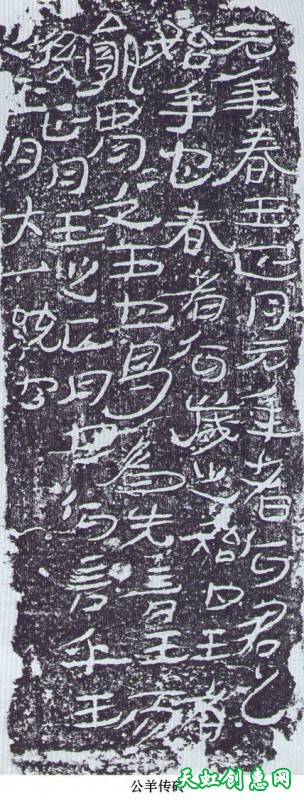 元年春王正月元年者何君之
始年也春者何歲之始也王者
孰胃文王也曷為先言王而
後正月王之正月也何言乎王
正月大一統也
公羊传砖
天虹创惠网